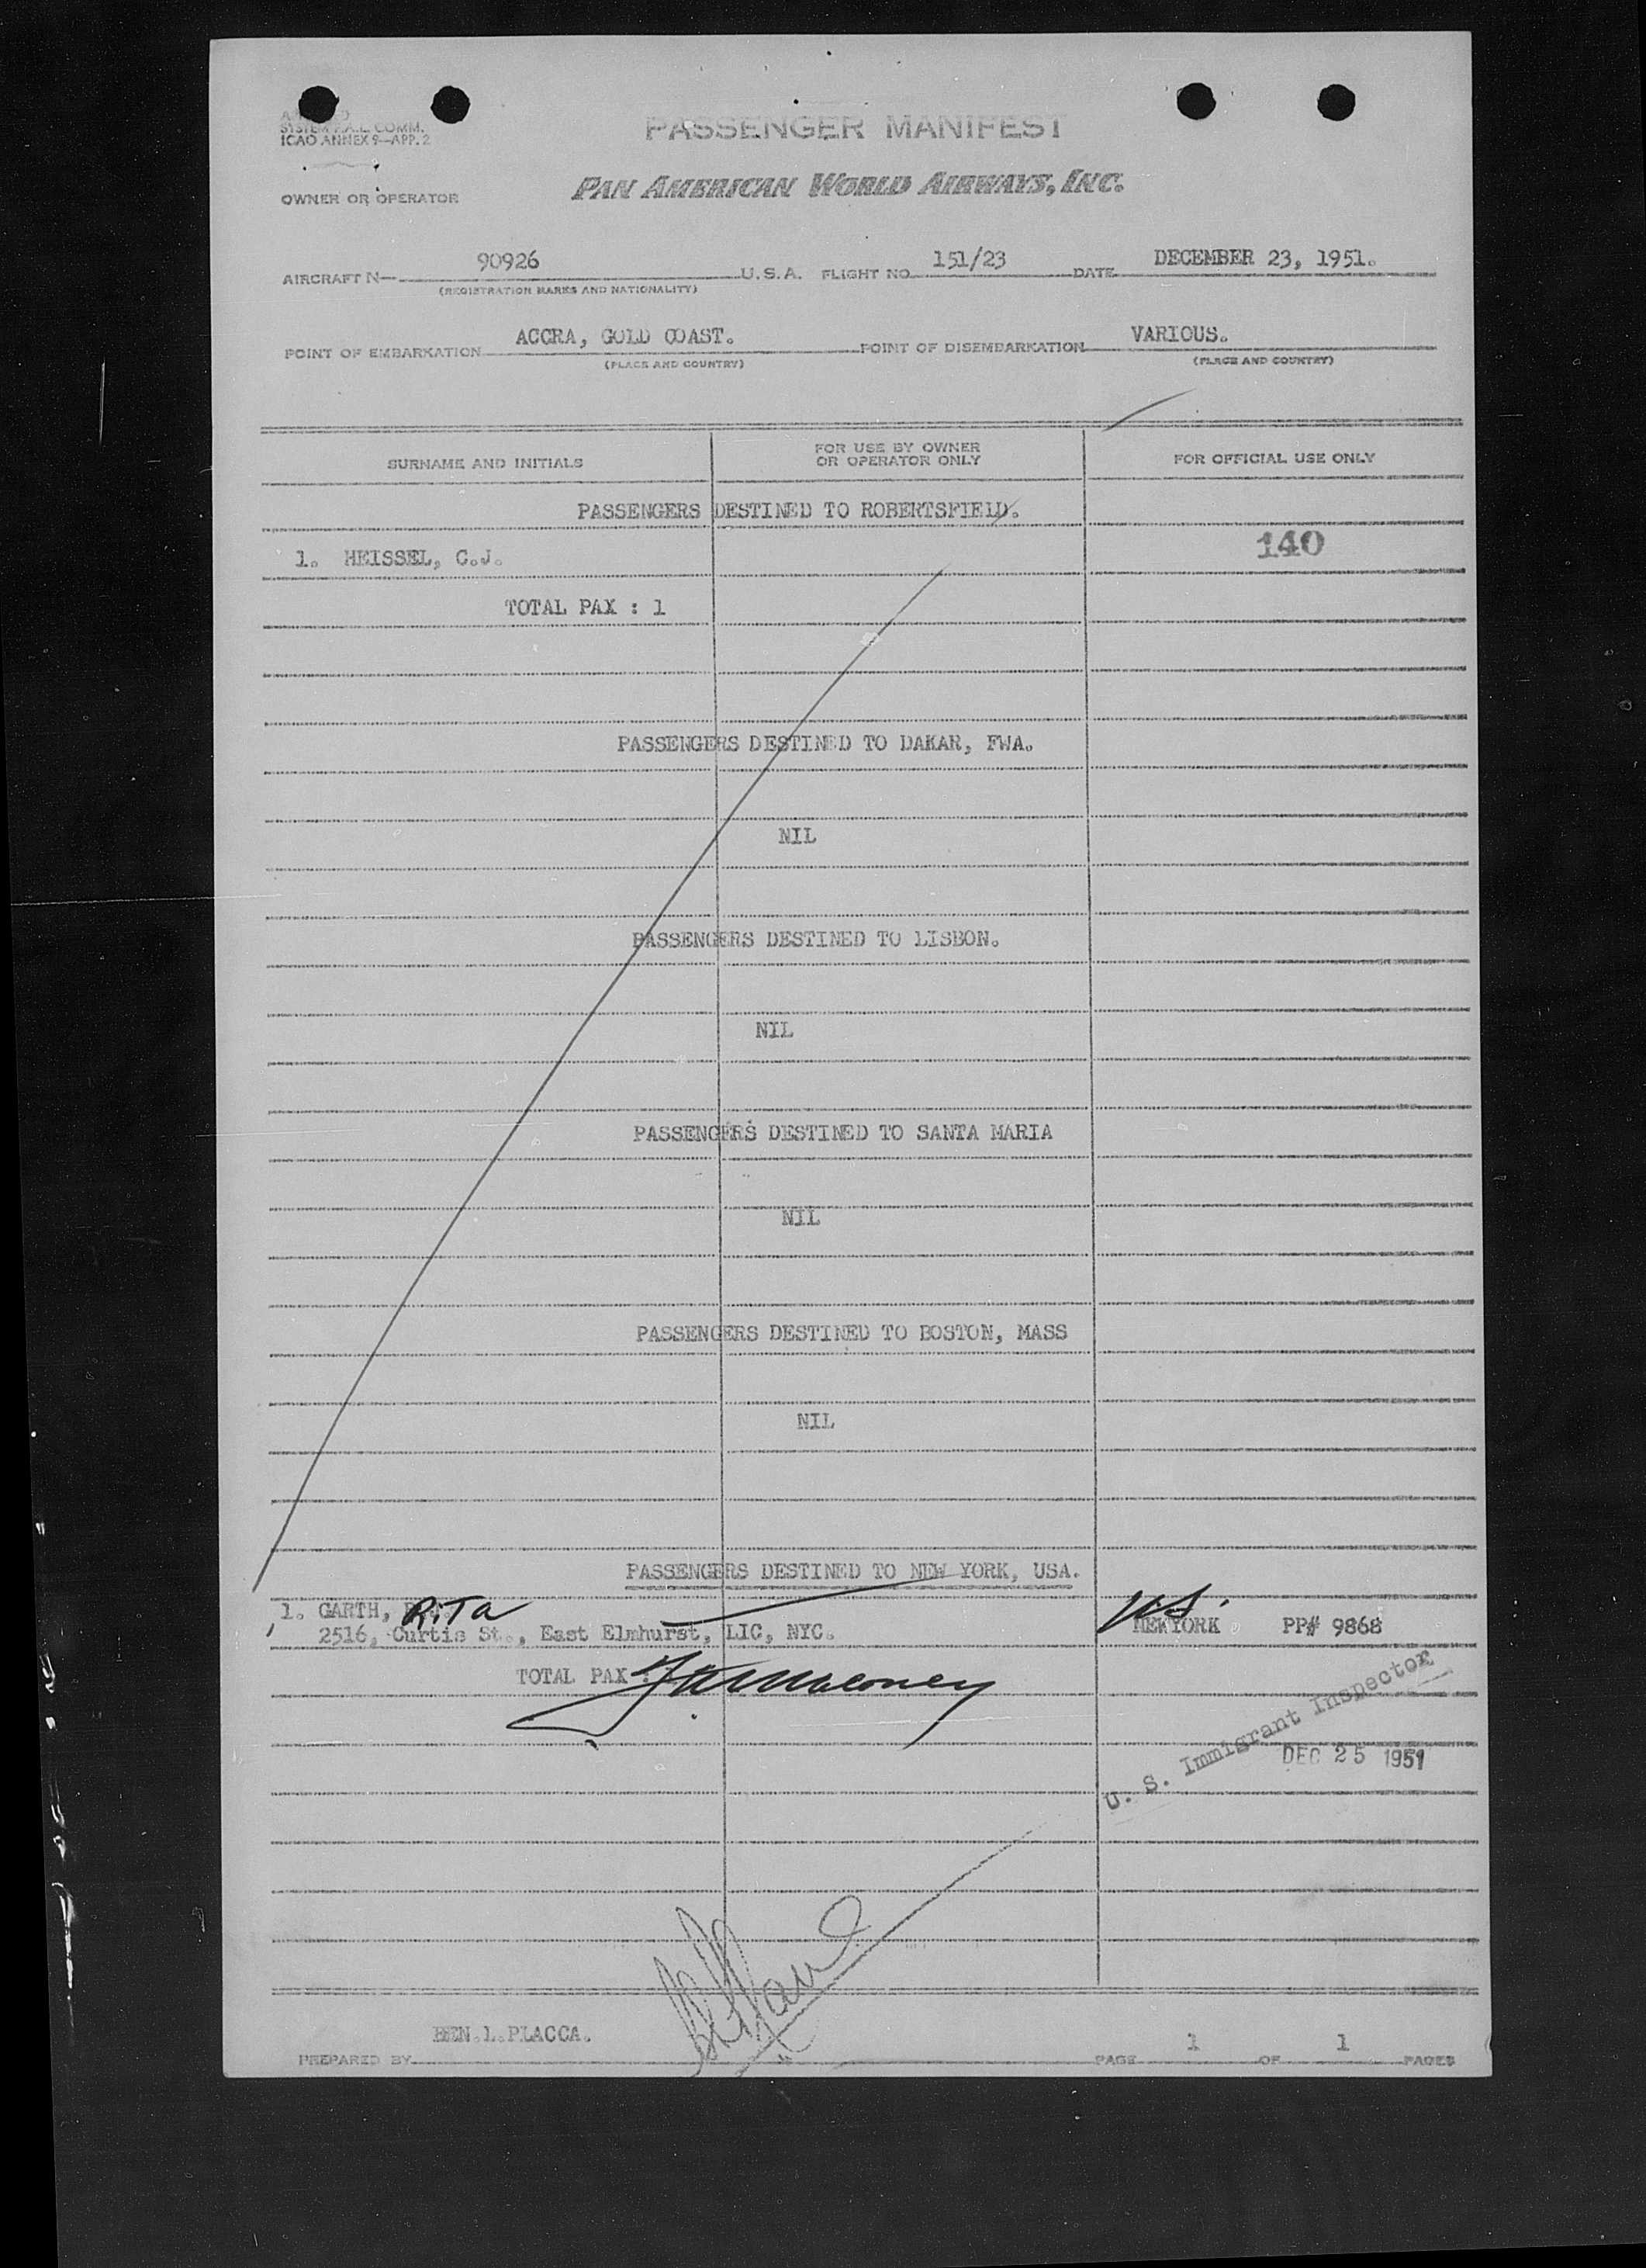 SYSTEM F.A.L. COMM.
ICAO ANNEX 9—APP. 2
PASSENGER MANIFEST
OWNER OR OPERATOR
PAN AMERICAN WORLD AIRWAYS, INC.
AIRCRAFT N— 90926 U.S.A. FLIGHT NO. 151/23 DATE DECEMBER 23, 1951.
(REGISTRATION MARKS AND NATIONALITY)
POINT OF EMBARKATION ACCRA, GOLD COAST. POINT OF DISEMBARKATION VARIOUS.
(PLACE AND COUNTRY) (PLACE AND COUNTRY)
SURNAME AND INITIALS FOR USE BY OWNER OR OPERATOR ONLY FOR OFFICIAL USE ONLY
PASSENGERS DESTINED TO ROBERTSFIELD.
140
1. HEISSEL, C.J.
TOTAL PAX : 1
PASSENGERS DESTINED TO DAKAR, FWA.
NIL
PASSENGERS DESTINED TO LISBON.
NIL
PASSENGERS DESTINED TO SANTA MARIA
NIL
PASSENGERS DESTINED TO BOSTON, MASS
NIL
PASSENGERS DESTINED TO NEW YORK, USA.
1. GARTH, RiTa US.
2516, Curtis St., East Elmhurst, LIC, NYC. NEWYORK PP# 9868
TOTAL PAX :
U. S. Immigrant Inspector
DEC 25 1951
BEN.L.PLACCA.
PREPARED BY PAGE 1 OF 1 PAGES